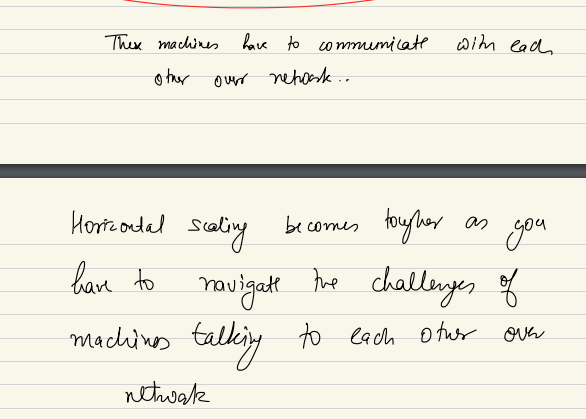 These machines have to communicate with each
other over network..
Horizontal scaling becomes tougher as you
have to navigate the challenges of
machines talking to each other over
network